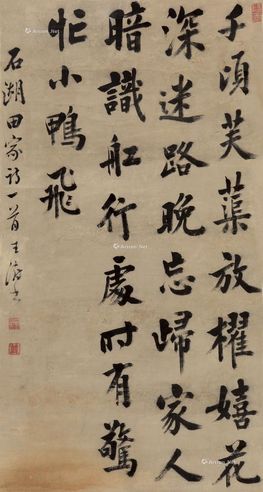 千頃芙蕖放櫂嬉花
深迷路晚忘歸家人
暗識舡行處时有驚
忙小鴨飛
石湖田家詩一首 王澍書